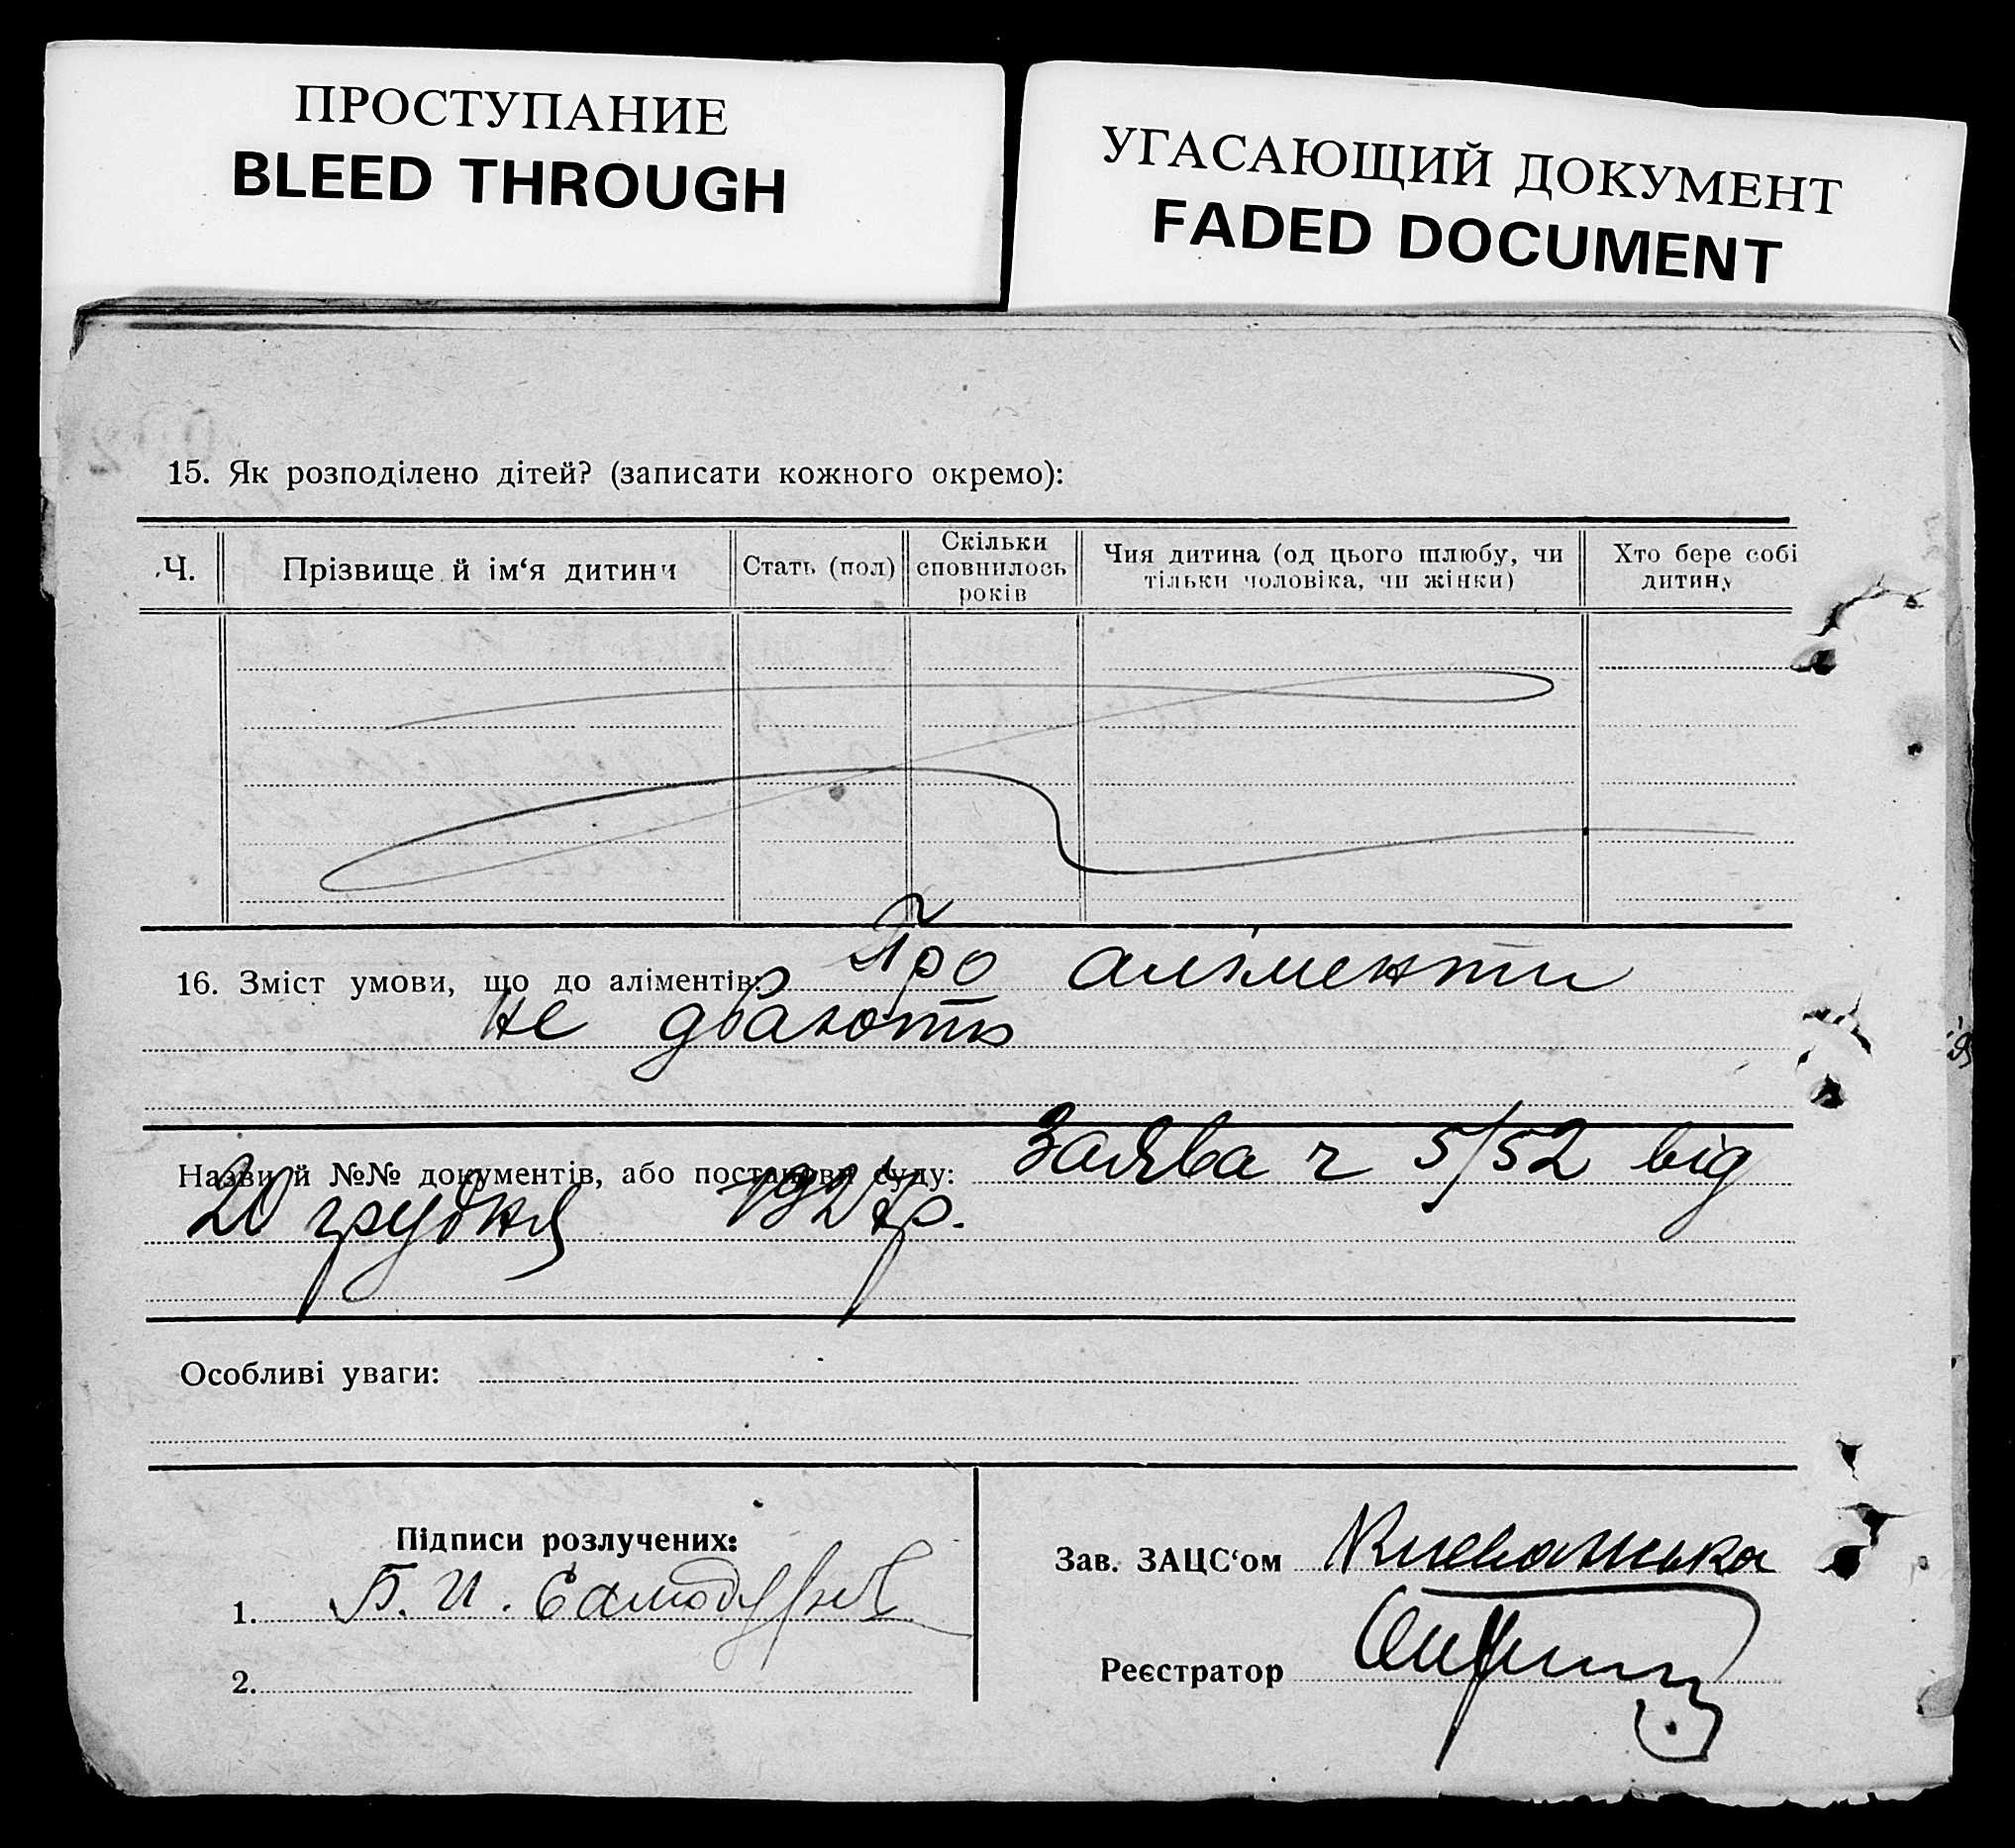 ПРОСТУПАНИЕ
BLEED THROUGH
УГАСАЮЩИЙ ДОКУМЕНТ
FADED DOCUMENT
15. Як розподілено дітей? (записати кожного окремо):
Ч.
Прізвище й ім‘я дитини
Стать (пол)
Скільки
сповнилось
років
Чия дитина (од цього шлюбу, чи
тільки чоловіка, чи жінки)
Хто бере собі
дитину
16. Зміст умови, що до аліментів: Про аліменти
не дбають
Назви й №№ документів, або постанови суду: Заява ч 5/52 від
20 грудня 1927 р.
Особливі уваги:
Підписи розлучених:
1. Б. И.
2.
Зав. ЗАЦС‘ом
Реєстратор